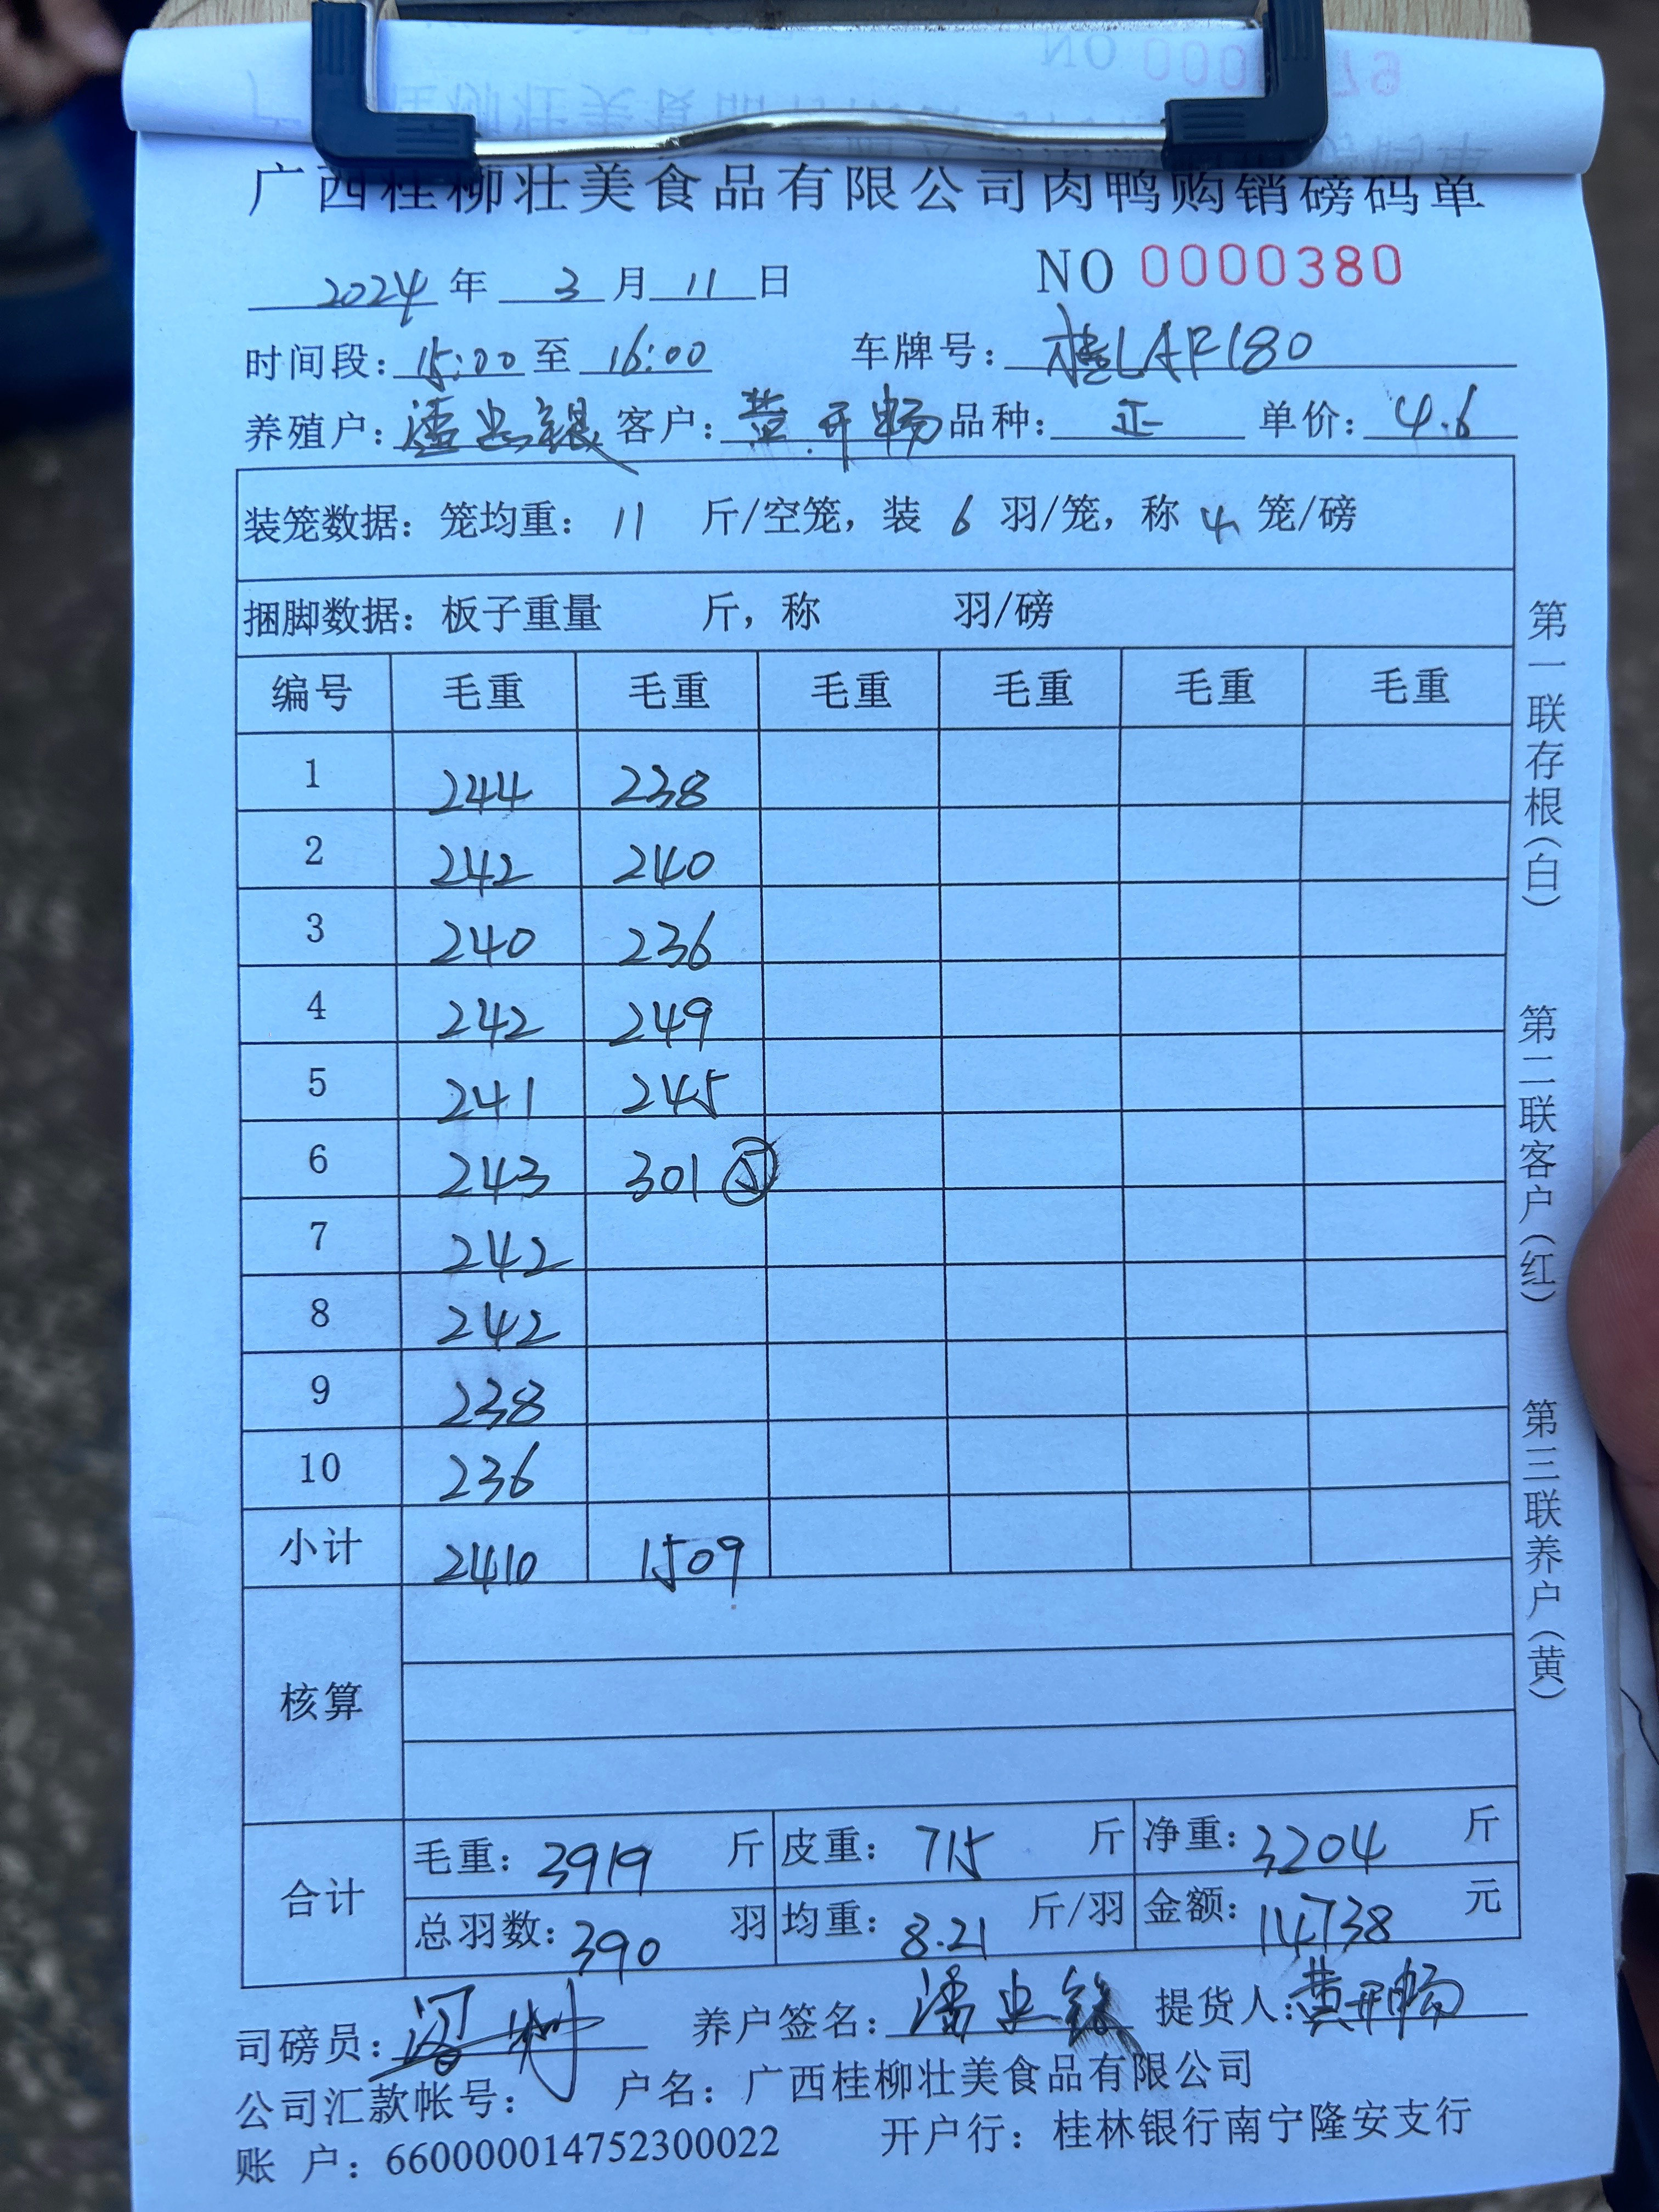 广西桂柳壮美食品有限公司肉鸭购销磅码单
2024 年 3 月 11 日 NO 0000380
时间段: 15:00 至 16:00 车牌号: 桂LAF180
养殖户: 潘忠银 客户: 黄开畅 品种: 正 单价: 4.6
装笼数据: 笼均重: 11 斤/空笼, 装 6 羽/笼, 称 4 笼/磅
捆脚数据: 板子重量 斤, 称 羽/磅
编号 毛重 毛重 毛重 毛重 毛重 毛重
1 244 238
2 242 240
3 240 236
4 242 249
5 241 245
6 243 301 ⑤
7 242
8 242
9 238
10 236
小计 2410 1509
核算
合计
毛重: 3919 斤 皮重: 715 斤 净重: 3204 斤
总羽数: 390 羽 均重: 8.21 斤/羽 金额: 14738 元
司磅员: 养户签名: 潘忠银 提货人: 黄开畅
公司汇款帐号: 户名: 广西桂柳壮美食品有限公司
账 户: 660000014752300022 开户行: 桂林银行南宁隆安支行
第一联存根(白) 第二联客户(红) 第三联养户(黄)